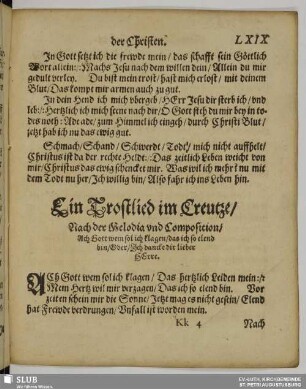 der Christen. LXIX
In Gott setz ich die frewde mein / das schafft sein Göttlich
Wort allein::Machs Jesu nach dem willen dein / Allein du mir
gedult verley. Du bist mein trost / hast mich erlost / mit deinem
Blut / Das kompt mir armen auch zu gut.
In dein Hend ich mich vbergeb / HErr Jesu dir sterb ich / vnd
leb::Hertzlich ich mich seene nach dir / O Gott steh du mir bey in to-
des noth: Ade ade / zum Himmel ich eingeh / durch Christi Blut /
jetzt hab ich nu das ewig gut.
Schmach / Schand / Schwerdt / Todt / mich nicht auffhelt /
Christus ist da der rechte Heldt::Das zeitlich Leben weicht von
mir / Christus das ewig schencket mir. Was wil ich mehr? nu mit
dem Todt nu her / Ich willig bin / Also fahr ich ins Leben hin.
Ein Trostlied im Creutze /
Nach der Melodia vnd Composition /
Ach Gott wem sol ich klagen / das ich so elend
bin / Oder / Ich dancke dir lieber
HErre.
ACh Gott wem sol ich klagen / Das hertzlich Leiden mein::
Mein Hertz wil mir verzagen / Das ich so elend bin. Vor
zeiten schein mir die Sonne / Jetzt mag es nicht gesein / Elend
hat Frewde verdrungen / Vnfall ist worden mein.
Kk 4 Nach
SLUB
Wir führen Wissen.
EV.-LUTH. KIRCHGEMEINDE
ST. PETRI AUGUSTUSBURG